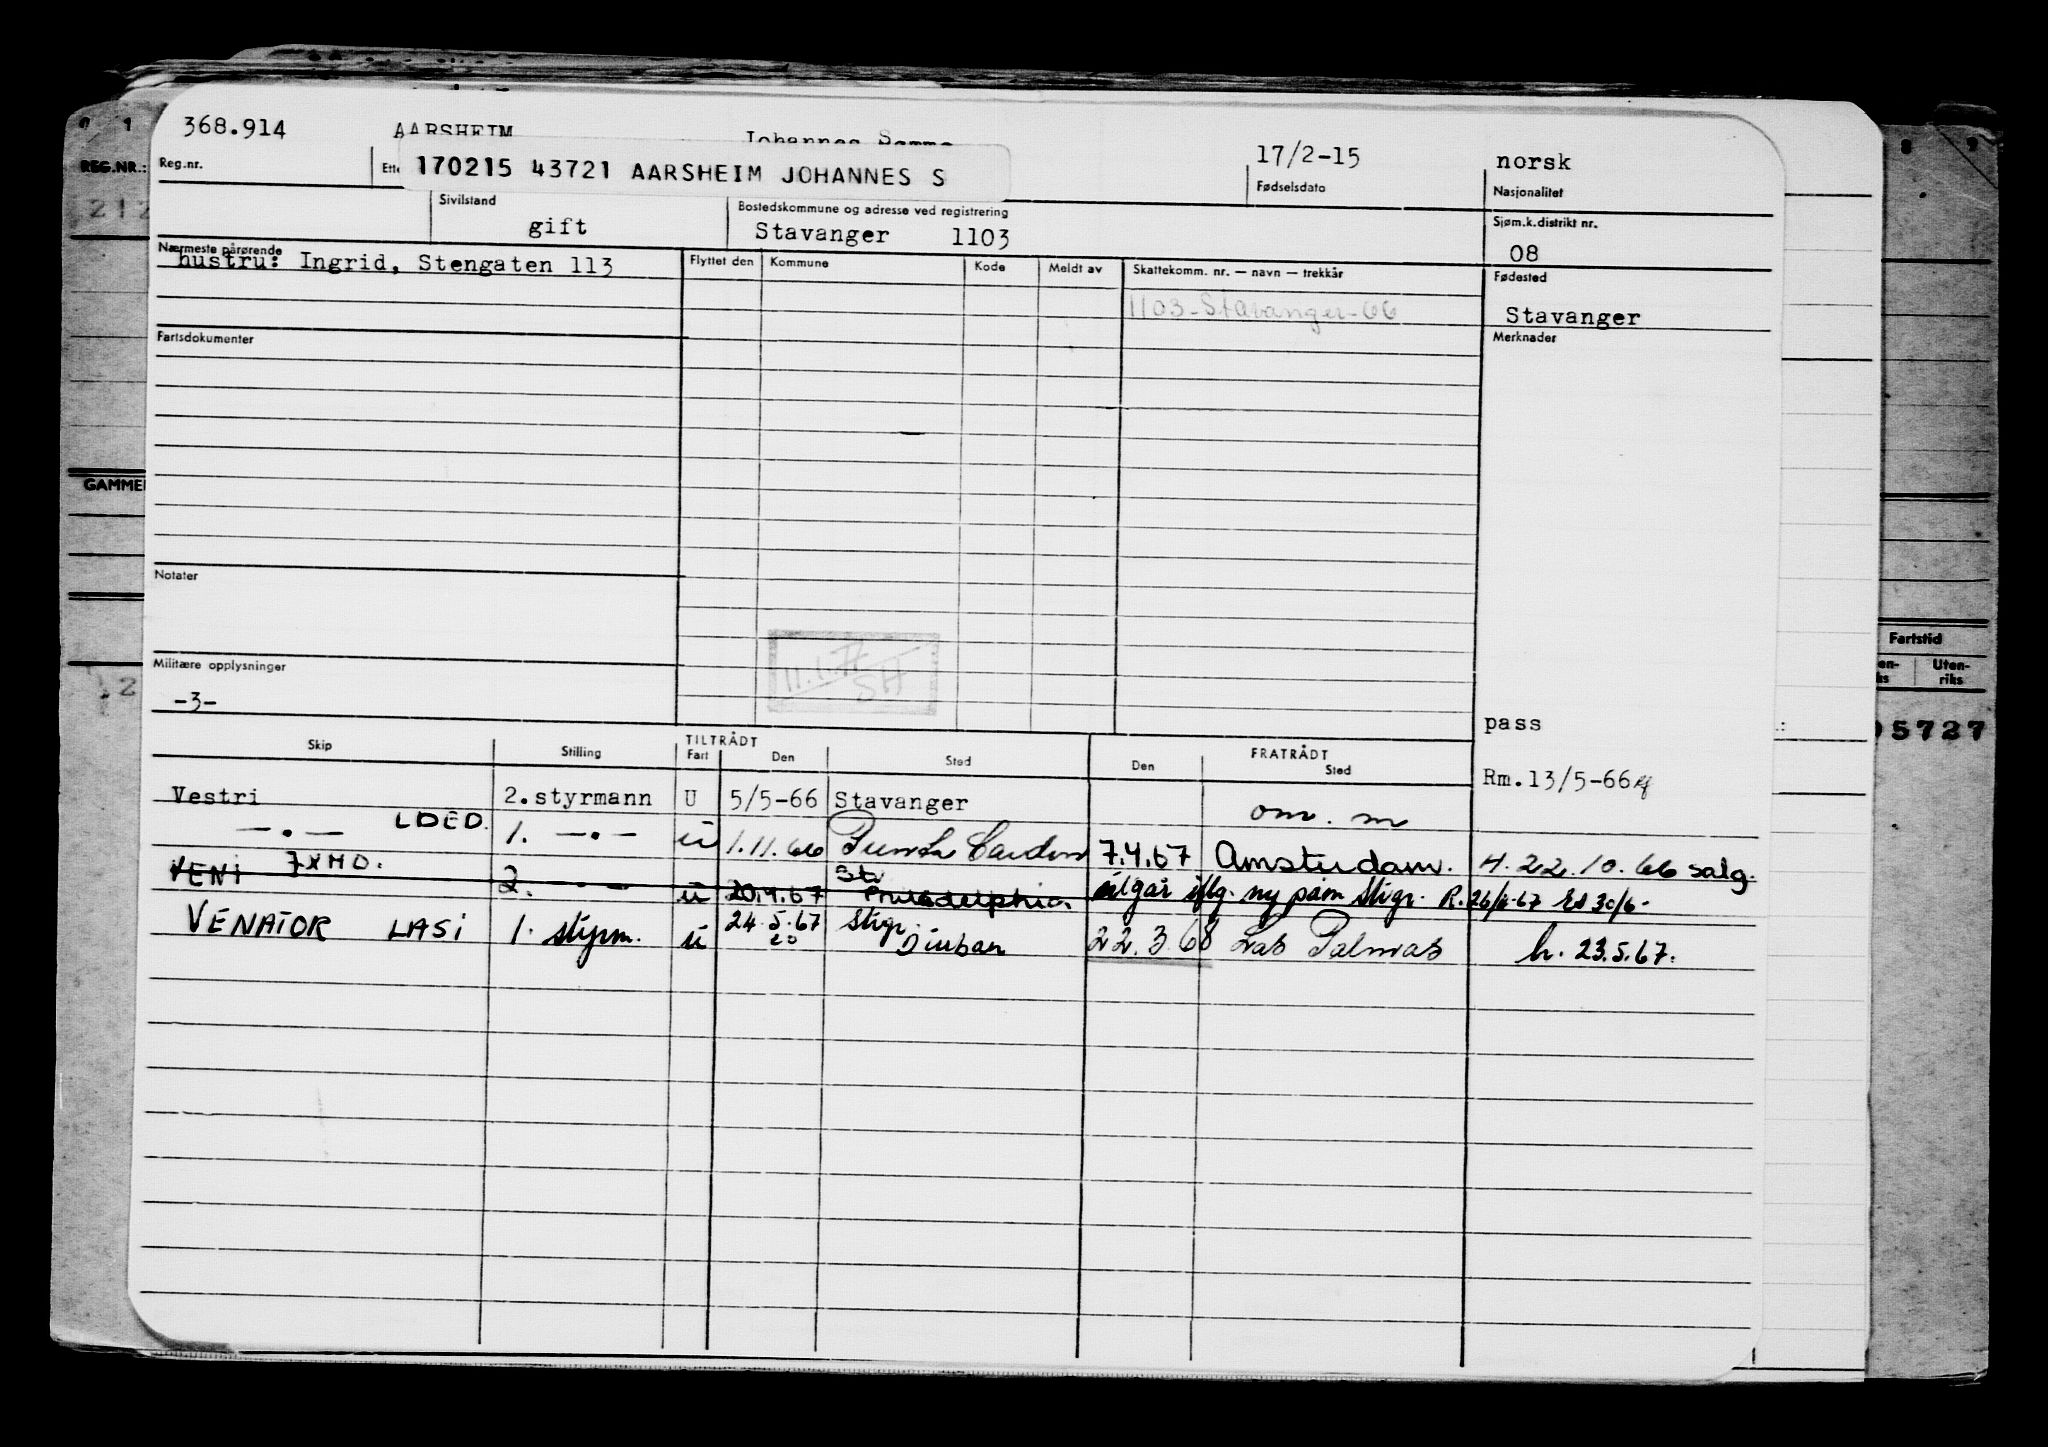 368.914 AARSHEIM Johannes 17/2-15 norsk
Reg.nr. 170215 43721 AARSHEIM JOHANNES S Fødselsdato Nasjonalitet
REG.NR.:
Sivilstand Bostedskommune og adresse ved registrering Sjøm.k.distrikt nr.
gift Stavanger 1103 08
Nærmeste pårørende Flyttet den Kommune Kode Meldt av Skattekomm. nr. — navn — trekkår Fødested
hustru: Ingrid, Stengaten 113
1103-Stavanger-66 Stavanger
Fartsdokumenter Merknader
Notater
Militære opplysninger
-3-
11.1.
SH
pass
Fartstid
Uten-
riks
5727
Skip Stilling TILTRÅDT FRATRÅDT
Fart Den Sted Den Sted
Rm.13/5-66
Vestri 2.styrmann U 5/5-66 Stavanger om. m
—.— LDED. 1. —.— u 1.11.66 7.4.67 Amsterdam. H. 22.10.66 salg.
VENI JXHD. 2. —.— u 20.4.67 Philadelphia utgår iflg. ny påm Stvgr. R.26/6-67 30/6-
VENATOR LASI 1. styrm. u 24.5.67 Stvgr. Durban 22.3.68 Las Palmas h. 23.5.67.
20